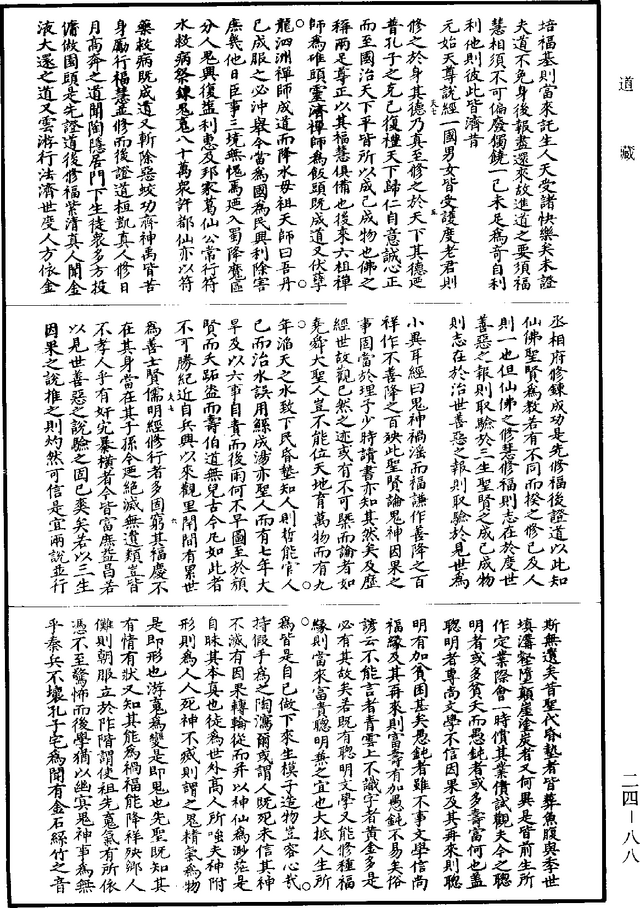 道藏
培福基則當來託生人天受諸快樂矣未證
夫道不免身後報盡還來故進道之要須福
慧相須不可偏廢獨饒一己未足為奇自利
利他則彼此皆濟昔
元始天尊說經一國男女皆受護度老君則
修之於身其德乃真至修之於天下其德迺
普孔子之克己復禮天下歸仁自意誠心正
而至國治天下平皆所以成己成物也佛之
稱兩足尊正以其福慧俱備也後來六祖禪
師為碓頭靈濟禪師為飯頭既成道又伏孽
龍泗洲禪師成道而降水母祖天師曰吾丹
已成服之必沖舉令當為國為民興利除害
庶幾他日臣事三境無愧焉迺入蜀降魔區
分人鬼興復鹽利惠及邦家葛仙公常行符
水救病祭鍊鬼鬼八十萬衆許都仙亦以符
藥救病既成道又斬除惡蛟功齊神禹皆苦
身勵行福慧並修而後證道桓凱真人修日
月高奔之道聞陶隱居門下生徒衆多方投
傭做園頭是先證道後修福紫清真人聞金
液大還之道又雲游行法濟世度人方依金
丞相府修鍊成功是先修福後證道以此知
仙佛聖賢為教若有不同而揆之修己及人
則一也但仙佛之修慧修福則志在於度世
善惡之報則取驗於三生聖賢之成己成物
則志在於治世善惡之報則取驗於見世為
小異耳經曰鬼神禍淫而福謙作善降之百
祥作不善降之百殃此聖賢論鬼神因果之
事固當於理予少時讀書亦知其然矣及歷
經世故觀已然之迹或有不可槩而論者如
堯舜大聖人豈不能位天地育萬物而有九
年滔天之水致下民昏墊知人則哲能官人
已而治水誤用鯀成湯亦聖人而有七年大
旱及以六事自責而後雨何不早圖至於顏
賢而夭跖盜而壽伯道無兒古今凡如此者
不可勝紀近自兵興以來觀里閈間有累世
為善士賢儒明經修行者多困窮其福慶不
在其身當在其子孫令迺絕滅無遺類豈皆
不孝人乎有奸宄暴橫者令皆富庶益昌若
以見世善惡之說驗之固已爽矣若以三生
因果之說推之則灼然可信是宜兩說並行
斯無遺矣昔聖代昏墊者皆葬魚腹與季世
填溝壑墮顛崖塗炭者又何異是皆前生所
作定業際會一時償其業債試觀夫今之聰
明者或多貧夭而愚鈍者或多壽富何也蓋
聰明者專尚文學不信因果及其再來則聰
明有加貧困甚矣愚鈍者雖不事文學信尚
福緣及其再來則富壽有加愚鈍不易矣俗
諺云不能言者青雲上不識字者黃金多是
必有其故矣若既有聰明文學又能修種福
緣則當來富貴聰明無之宜也大抵人生所
為皆是自己做下來生模子造物豈容心哉
持假手為之陶瀉爾或謂人既死未信其神
不滅有因果轉輪從而并以神仙為渺茫是
自昧其本真也徒為世外高人所嗤夫神附
形則為人人死神不滅則謂之鬼精氣為物
是即形也游鬼為變是即鬼也先聖既知其
有情有狀又知其能為禍福能降祥殃鄉人
儺則朝服立於阼階謂使祖先鬼氣有所依
憑不至驚怖而後學猶以幽冥鬼神事為無
乎秦兵不壞孔子宅為聞有金石絲竹之音
二四－八八